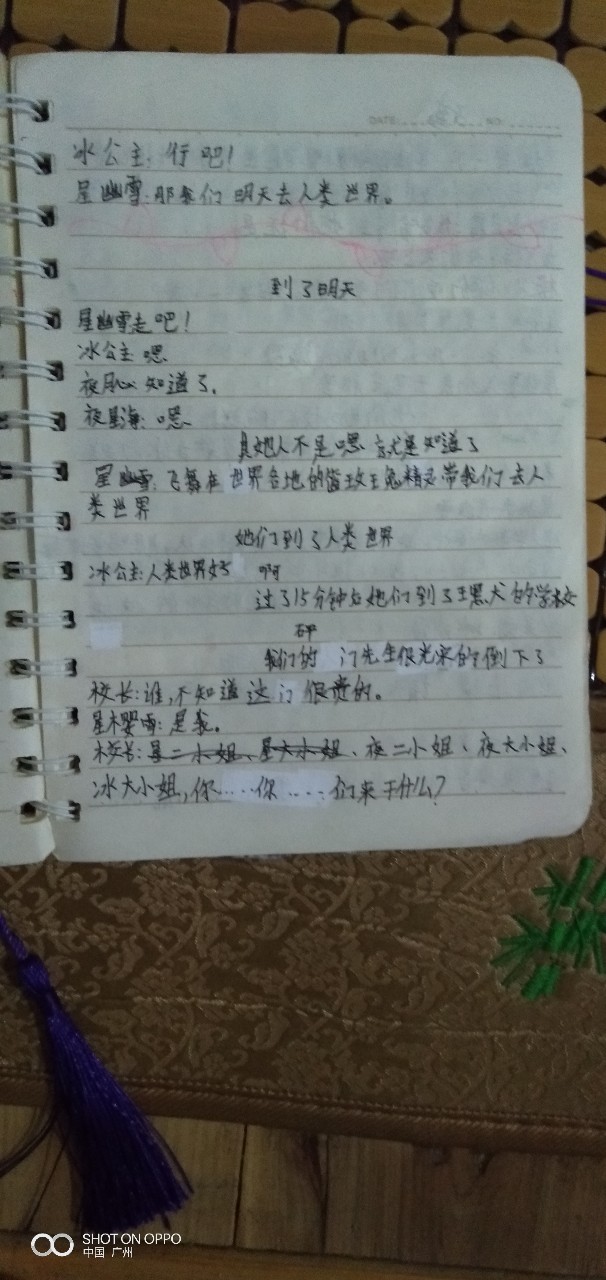 冰公主:行吧!
星幽雪:那我们明天去人类世界。
到了明天
星幽雪走吧!
冰公主 嗯
夜 知道了.
夜星海:嗯
其她人不是嗯就是知道了
星幽雪:飞舞在世界各地的 玫王兔精灵带我们去人
类世界
她们到了人类世界
冰公主:人类世界好 啊
过了15分钟后她们到了 的学校
砰
我们的 门先生很光荣的倒下了
校长:谁,不知道这门很贵的。
星樱雪:是我。
校长:星二小姐、星大小姐、夜二小姐、夜大小姐、
冰大小姐,你....你....们来干什么?
SHOT ON OPPO
中国 广州